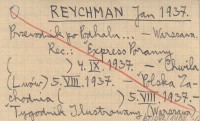 Q REYCHMAN Jan 1937.
Przewodnik po Podhalu... - Warszawa
Rec.: "Express Poranny
( ) 4.IX.1937. - "Chwila
(Lwów) 5.VIII.1937. - "Polska Za-
chodnia ( ) 5.VIII.1937. -
"Tygodnik Ilustrowany (Warszawa)